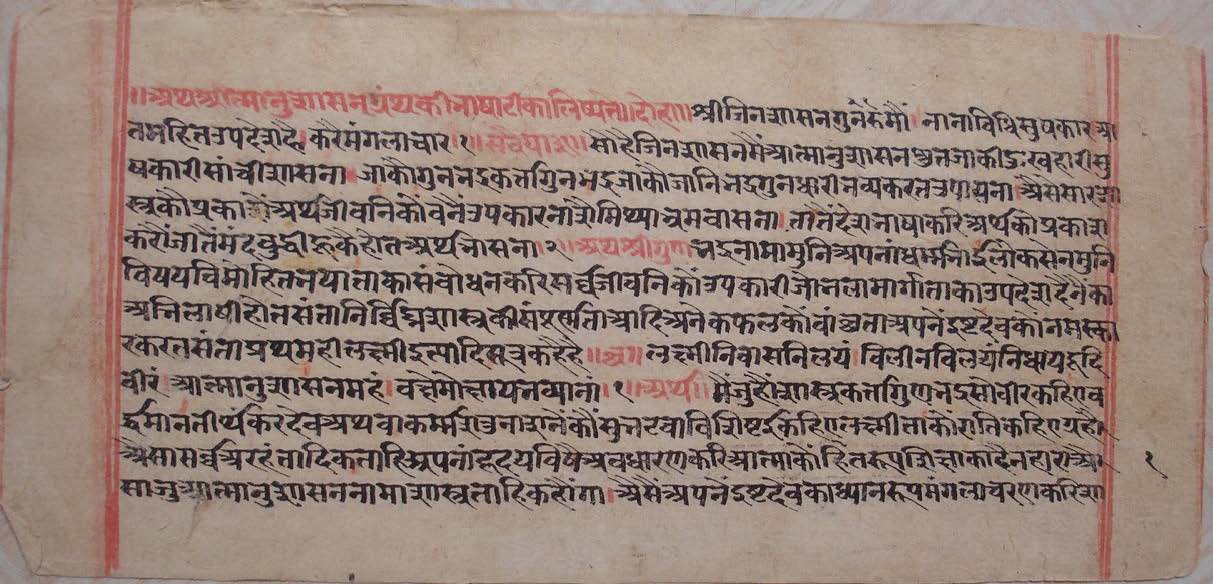 ॥अथ आत्मानुशासनग्रंथकी भाषाटीका लिष्यते॥दोहा॥ श्रीजिनशासनगुरु नमौं नानाविधिसुषकार आ
तमहितउपदेशदै करै मंगलाचार १ ॥सवैया ३१॥ सोहै जिनशासनमैं आत्मानुशासन श्रुत जाकी दुःखहारी सु
षकारी सांची शासना जाकौ गुनभद्र कर्त्ता गुनभद्र जाकौ जानि भद्र गुनधारी भव्य करत उपासना ऐसे सार शा
स्त्रकौ प्रकाशै अर्थ जीवनिकौं वनै उपकार नाशै मिथ्या भ्रम वासना तातैं देशभाषा करि अर्थकौ प्रकाश
करौं जातैं मंद बुद्धी हूकै होत अर्थ भासना २ ॥अथ श्रीगुणभद्रनामा मुनि अपनां धर्मभाई लोकसेन मुनि
विषयविमोहित भया ताका संबोधन करि सर्व जीवनिकौं उपकारी जो भला मार्ग ताका उपदेश दैनैंका
अभिलाषी होत संता निर्विघ्न शास्त्रकी संपूर्णता आदि अनेक फलकौं वांछता अपनें इष्टदेवकौं नमस्का
र करत संता प्रथम ही लक्ष्मी इत्यादि सूत्र कहै है ॥ लक्ष्मीनिवासनिलयं विलीनविलयं निधाय हृदि
वीरं आत्मानुशासनमहं वक्ष्ये मोक्षाय भव्यानां १ ॥अर्थ॥ मैं जु हौं शास्त्रकर्त्ता गुणभद्र सो वीर कहिए व
र्द्धमान तीर्थंकर देव अथवा कर्मशत्रु नाशनेंकौं सुभट वा विशिष्ट ई कहिए लक्ष्मी ताकौं राति कहिए ग्रहै
ऐसा सर्व अरहंतादिक ताहि अपनां हृदयविषै अवधारण करि आत्माकौं हितरूप शिक्षाका दैनहारा ऐ
सा जु आत्मानुशासन नामा शास्त्र ताहि कहौंगा ऐसैं अपनें इष्टदेवका ध्यानरूप मंगलाचरण करि शा
१